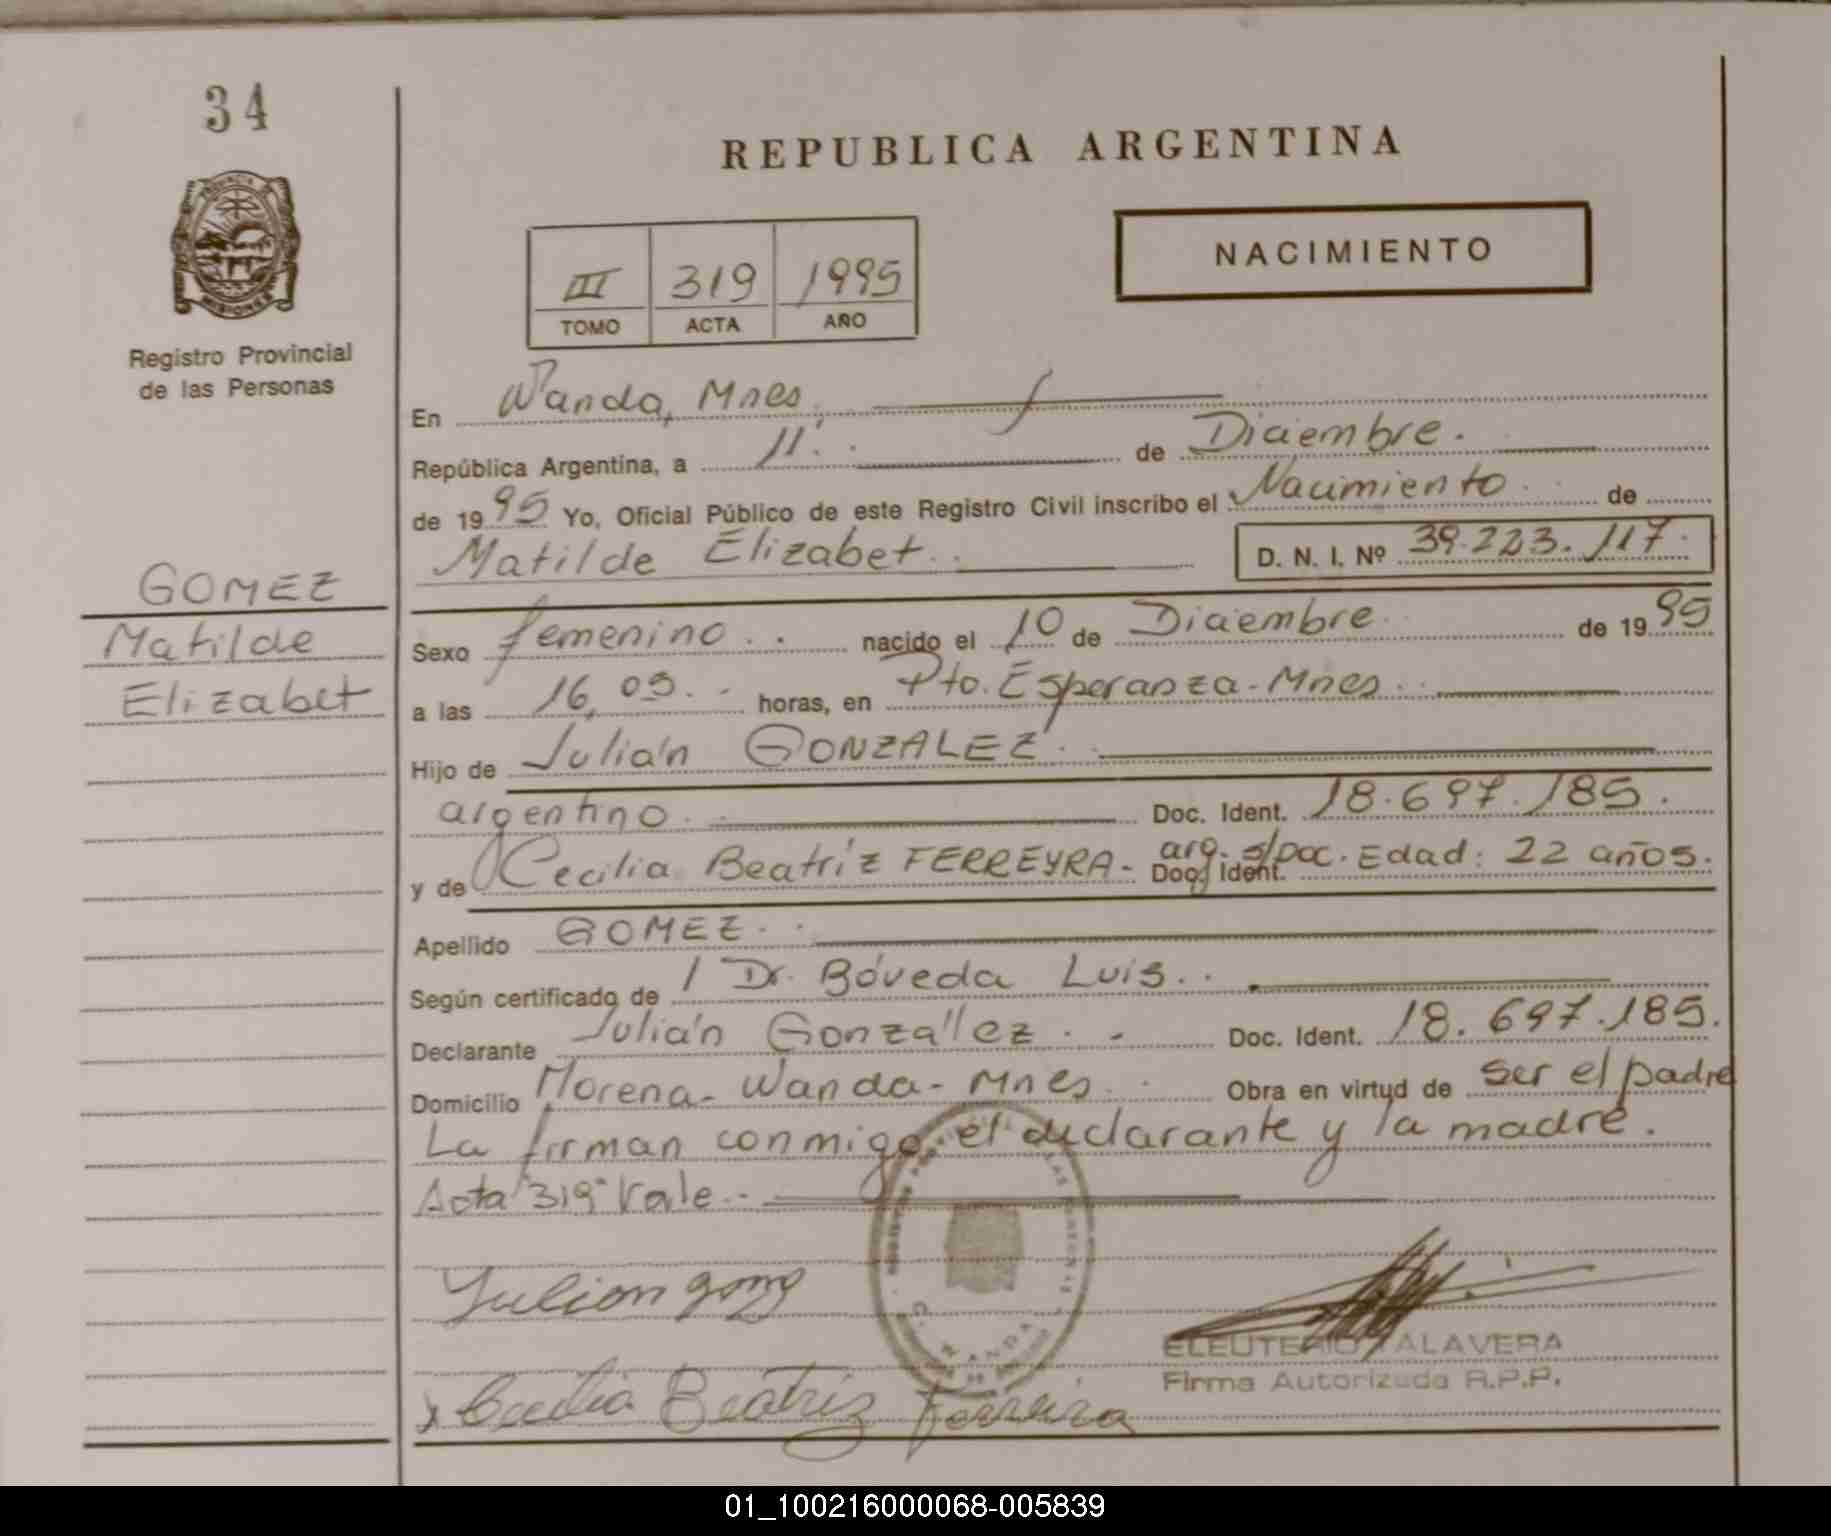 34
REPUBLICA ARGENTINA
NACIMIENTO
III 319 1995
TOMO ACTA AÑO
MISIONES
Registro Provincial
de las Personas
En Wanda, Mnes.
República Argentina, a 11. de Diciembre.
de 1995 Yo, Oficial Público de este Registro Civil inscribo el Nacimiento de
Matilde Elizabet. D. N. I. Nº 39.223.117.
GOMEZ
Matilde
Elizabet
Sexo femenino. nacido el 10 de Diciembre de 1995
a las 16,05. horas, en Pto. Esperanza - Mnes.
Hijo de Julián GONZALEZ.
argentino. Doc. Ident. 18.697.185.
y de Cecilia Beatriz FERREYRA - Doc. Ident. arg. s/Doc. Edad: 22 años.
Apellido GOMEZ.
Según certificado de / Dr. Bóveda Luis.
Declarante Julián Gonzállez. Doc. Ident. 18.697.185.
Domicilio Morena - Wanda - Mnes. Obra en virtud de ser el padre
La firman conmigo el declarante y la madre.
Acta "319" Vale.
Julian
ELEUTERIO TALAVERA
Firma Autorizada R.P.P.
Cecilia Beatriz Ferreira
01_100216000068-005839